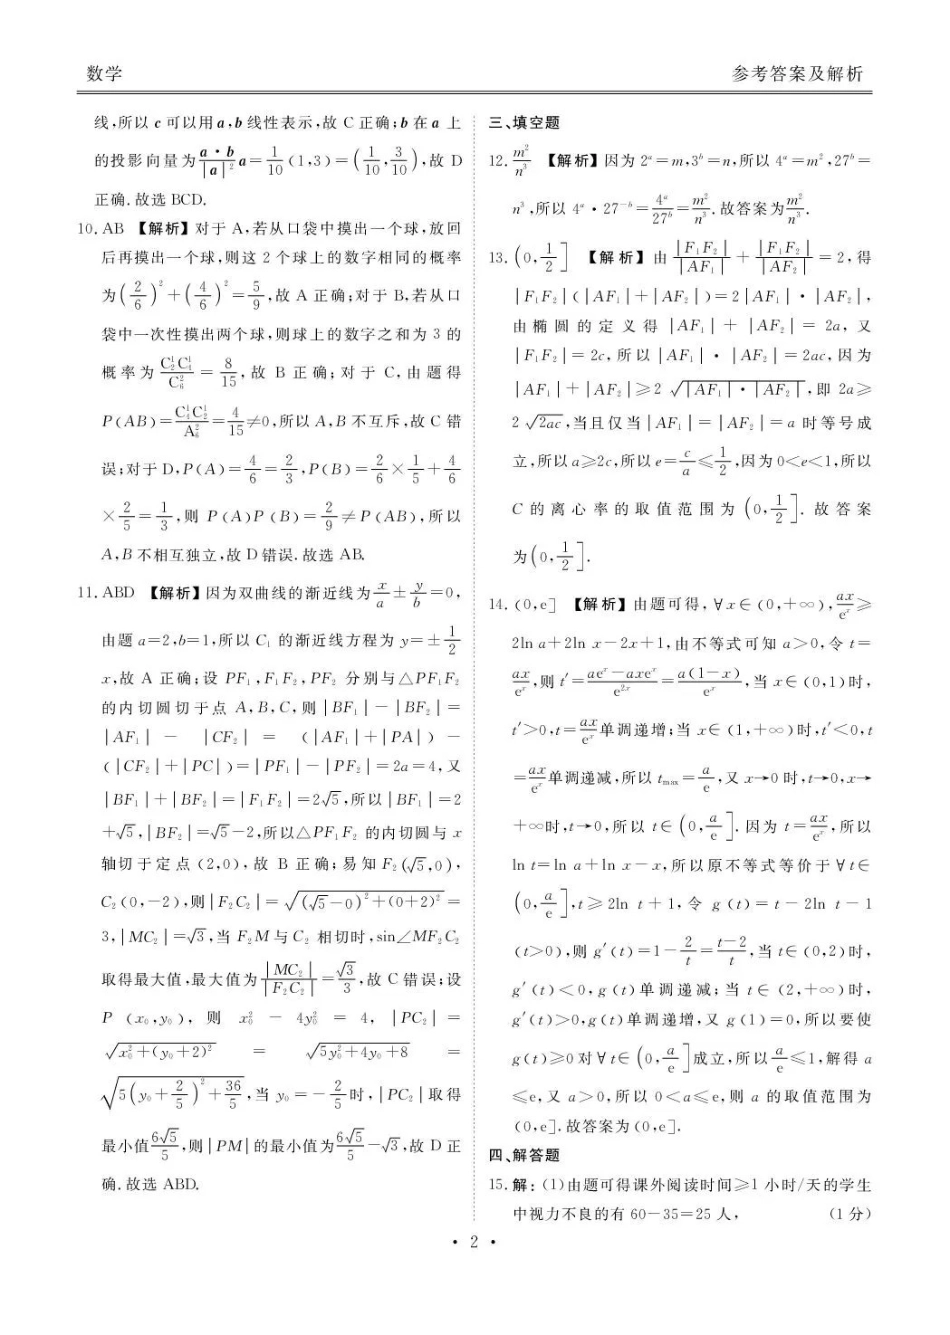 数学
参考答案及解析
线,所以 c 可以用 a,b 线性表示,故 C 正确;b 在 a 上
的投影向量为 \frac{a·b}{|a|^2}a=\frac{1}{10}(1,3)=(\frac{1}{10},\frac{3}{10}),故 D
正确.故选 BCD.
10. AB 【解析】对于 A,若从口袋中摸出一个球,放回
后再摸出一个球,则这 2 个球上的数字相同的概率
为(\frac{2}{6})^2+(\frac{4}{6})^2=\frac{5}{9},故 A 正确;对于 B,若从口
袋中一次性摸出两个球,则球上的数字之和为 3 的
概率为 \frac{C_2^1C_4^1}{C_6^2}=\frac{8}{15},故 B 正确;对于 C,由题得
P(AB)=\frac{C_4^1C_2^1}{A_6^2}=\frac{4}{15}≠0,所以 A,B 不互斥,故 C 错
误;对于 D,P(A)=\frac{4}{6}=\frac{2}{3},P(B)=\frac{2}{6}×\frac{1}{5}+\frac{4}{6}
×\frac{2}{5}=\frac{1}{3},则 P(A)P(B)=\frac{2}{9}≠P(AB),所以
A,B 不相互独立,故 D 错误.故选 AB.
11. ABD 【解析】因为双曲线的渐近线为\frac{x}{a}±\frac{y}{b}=0,
由题 a=2,b=1,所以 C₁ 的渐近线方程为 y=±\frac{1}{2}
x,故 A 正确;设 PF₁,F₁F₂,PF₂ 分别与△PF₁F₂
的内切圆切于点 A,B,C,则|BF₁|-|BF₂|=
|AF₁| - |CF₂| = (|AF₁|+|PA|) -
(|CF₂|+|PC|)=|PF₁|-|PF₂|=2a=4,又
|BF₁|+|BF₂|=|F₁F₂|=2√5,所以|BF₁|=2
+√5,|BF₂|=√5-2,所以△PF₁F₂ 的内切圆与 x
轴切于定点(2,0),故 B 正确;易知 F₂(√5,0),
C₂(0,-2),则|F₂C₂|=\sqrt{(√5-0)^2+(0+2)^2}=
3,|MC₂|=√3,当 F₂M 与 C₂ 相切时,sin∠MF₂C₂
取得最大值,最大值为\frac{|MC₂|}{|F₂C₂|}=\frac{√3}{3},故 C 错误;设
P (x₀,y₀), 则 x₀² - 4y₀² = 4, |PC₂| =
\sqrt{x₀²+(y₀+2)²} = \sqrt{5y₀²+4y₀+8} =
\sqrt{5(y₀+\frac{2}{5})^2+\frac{36}{5}},当 y₀=-\frac{2}{5}时,|PC₂|取得
最小值\frac{6√5}{5},则|PM|的最小值为\frac{6√5}{5}-√3,故 D 正
确.故选 ABD.
三、填空题
12. \frac{m²}{n³} 【解析】因为 2^a=m,3^b=n,所以 4^a=m²,27^b=
n³,所以 4^a·27^{-b}=\frac{4^a}{27^b}=\frac{m²}{n³}.故答案为\frac{m²}{n³}.
13. (0,\frac{1}{2}] 【解析】由 \frac{|F₁F₂|}{|AF₁|}+\frac{|F₁F₂|}{|AF₂|}=2,得
|F₁F₂|(|AF₁|+|AF₂|)=2|AF₁|·|AF₂|,
由椭圆的定义得 |AF₁| + |AF₂| = 2a, 又
|F₁F₂|=2c,所以|AF₁|·|AF₂|=2ac,因为
|AF₁|+|AF₂|≥2\sqrt{|AF₁|·|AF₂|},即 2a≥
2\sqrt{2ac},当且仅当|AF₁|=|AF₂|=a 时等号成
立,所以 a≥2c,所以 e=\frac{c}{a}≤\frac{1}{2},因为 0<e<1,所以
C 的离心率的取值范围为(0,\frac{1}{2}].故答案
为(0,\frac{1}{2}].
14. (0,e] 【解析】由题可得,∀x∈(0,+∞),\frac{ax}{e^x}≥
2ln a+2ln x-2x+1,由不等式可知 a>0,令 t=
\frac{ax}{e^x},则 t′=\frac{ae^x-axe^x}{e^{2x}}=\frac{a(1-x)}{e^x},当 x∈(0,1)时,
t′>0,t=\frac{ax}{e^x}单调递增;当 x∈(1,+∞)时,t′<0,t
=\frac{ax}{e^x}单调递减,所以 t_{max}=\frac{a}{e},又 x→0 时,t→0,x→
+∞时,t→0,所以 t∈(0,\frac{a}{e}].因为 t=\frac{ax}{e^x},所以
ln t=ln a+ln x-x,所以原不等式等价于∀t∈
(0,\frac{a}{e}],t≥2ln t+1,令 g(t)=t-2ln t-1
(t>0),则 g′(t)=1-\frac{2}{t}=\frac{t-2}{t},当 t∈(0,2)时,
g′(t)<0,g(t)单调递减;当 t∈(2,+∞)时,
g′(t)>0,g(t)单调递增,又 g(1)=0,所以要使
g(t)≥0 对∀t∈(0,\frac{a}{e}]成立,所以\frac{a}{e}≤1,解得 a
≤e,又 a>0,所以 0<a≤e,则 a 的取值范围为
(0,e].故答案为(0,e].
四、解答题
15. 解:(1)由题可得课外阅读时间≥1 小时/天的学生
中视力不良的有 60-35=25 人, (1 分)
· 2 ·